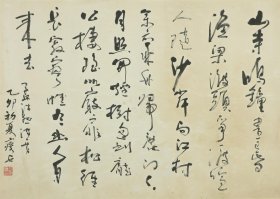 山寺鳴鐘晝已昏
漁梁渡頭爭渡喧
人隨沙岸向江村
余亦乘舟歸鹿門
月照開煙樹忽到龐
公棲隱處巖扉松徑
長寂寥惟有幽人自
來去
孟浩然詩
乙卯初夏